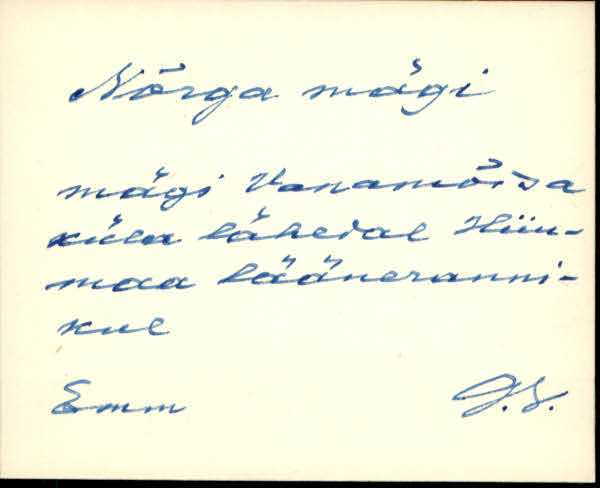 Nõrga mägi
mägi Vanamõisa
küla lähedal Hiiu-
maa lääneranni-
kul
Emm